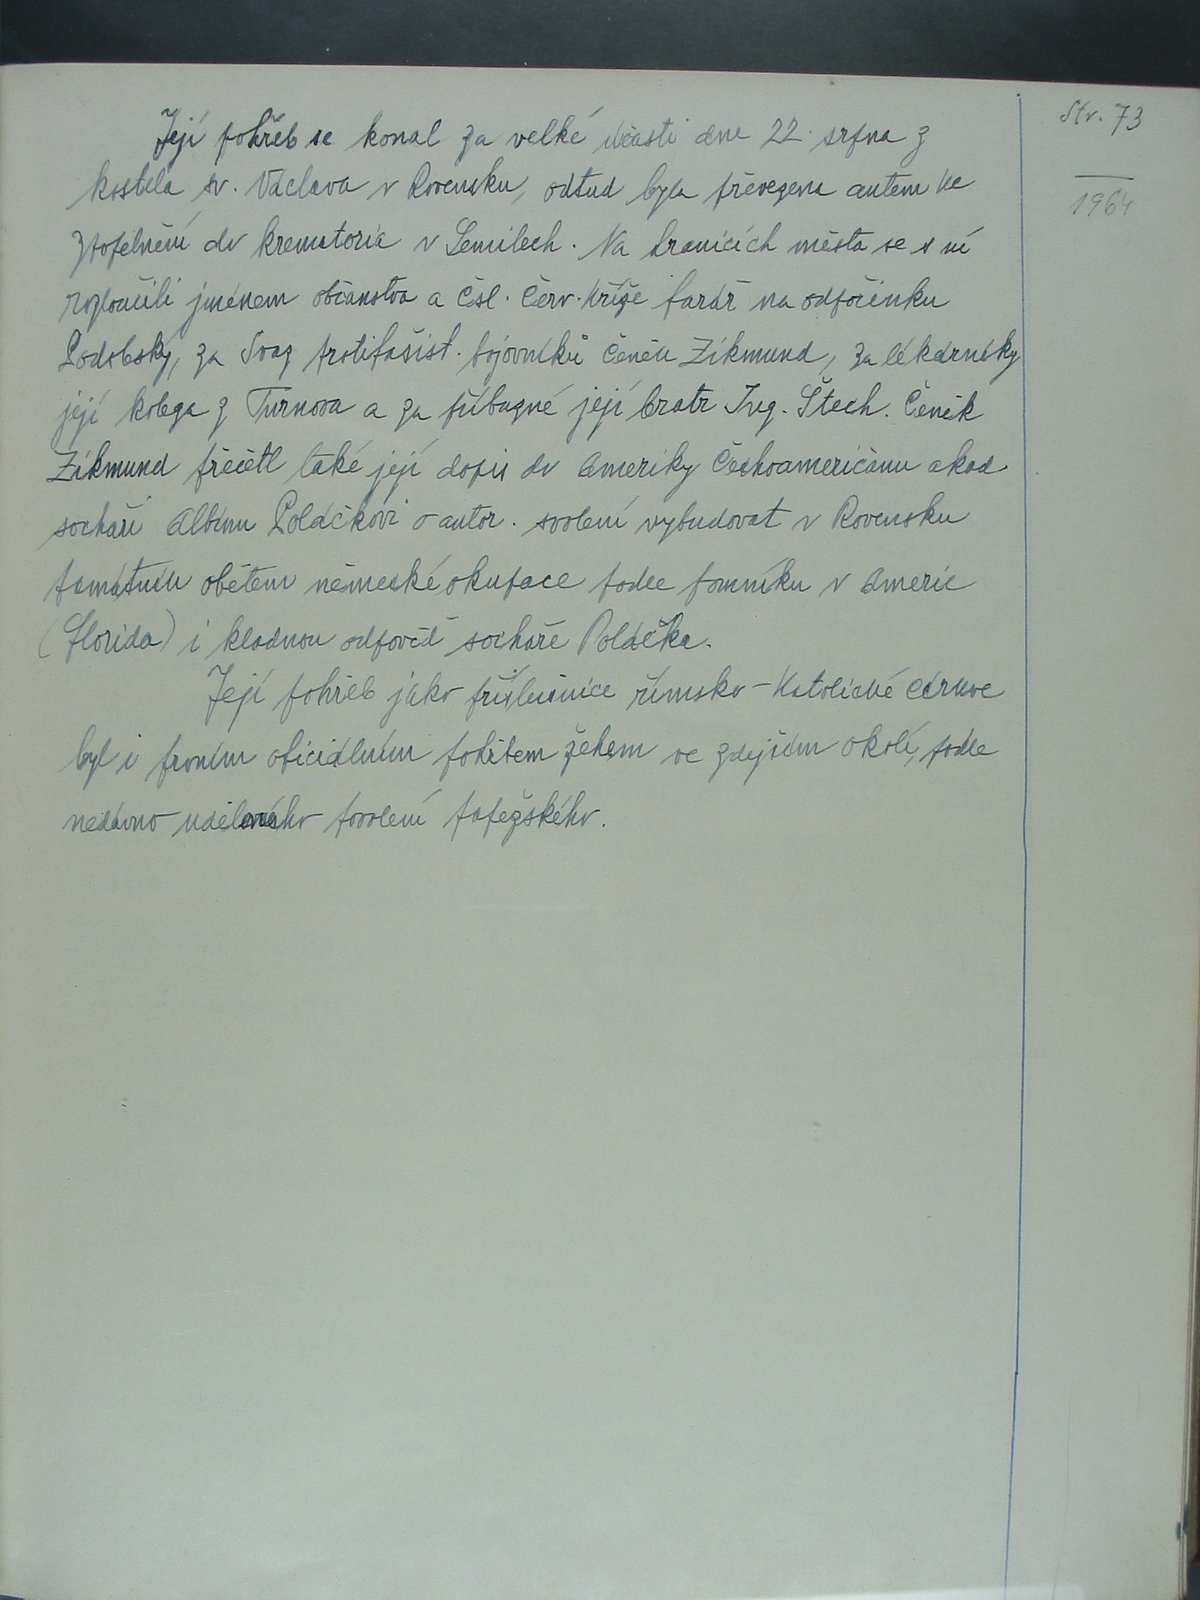 Str. 73
1964
Její pohřeb se konal za velké účasti dne 22. srpna z
kostela sv. Václava v Rovensku, odtud byla převezena autem ke
zpopelnění do krematoria v Semilech. Na hranicích města se s ní
rozloučili jménem občanstva a Čsl. Červ. kříže farář na odpočinku
Podobský, za Svaz protifašist. bojovníků Čeněk Zikmund, za lékárníky
její kolega z Turnova a za příbuzné její bratr Ing. Štech. Čeněk
Zikmund přečetl také její dopis do Ameriky Čechoameričanu akad.
sochaři Albínu Poláčkovi o autor. svolení vybudovat v Rovensku
památník obětem německé okupace podle pomníku v Americe
(Florida) i kladnou odpověď sochaře Poláčka.
Její pohřeb jako příslušnice římsko-katolické církve
byl i prvním oficiálním pohřbem žehem ve zdejším okolí, podle
nedávno uděleného povolení papežského.